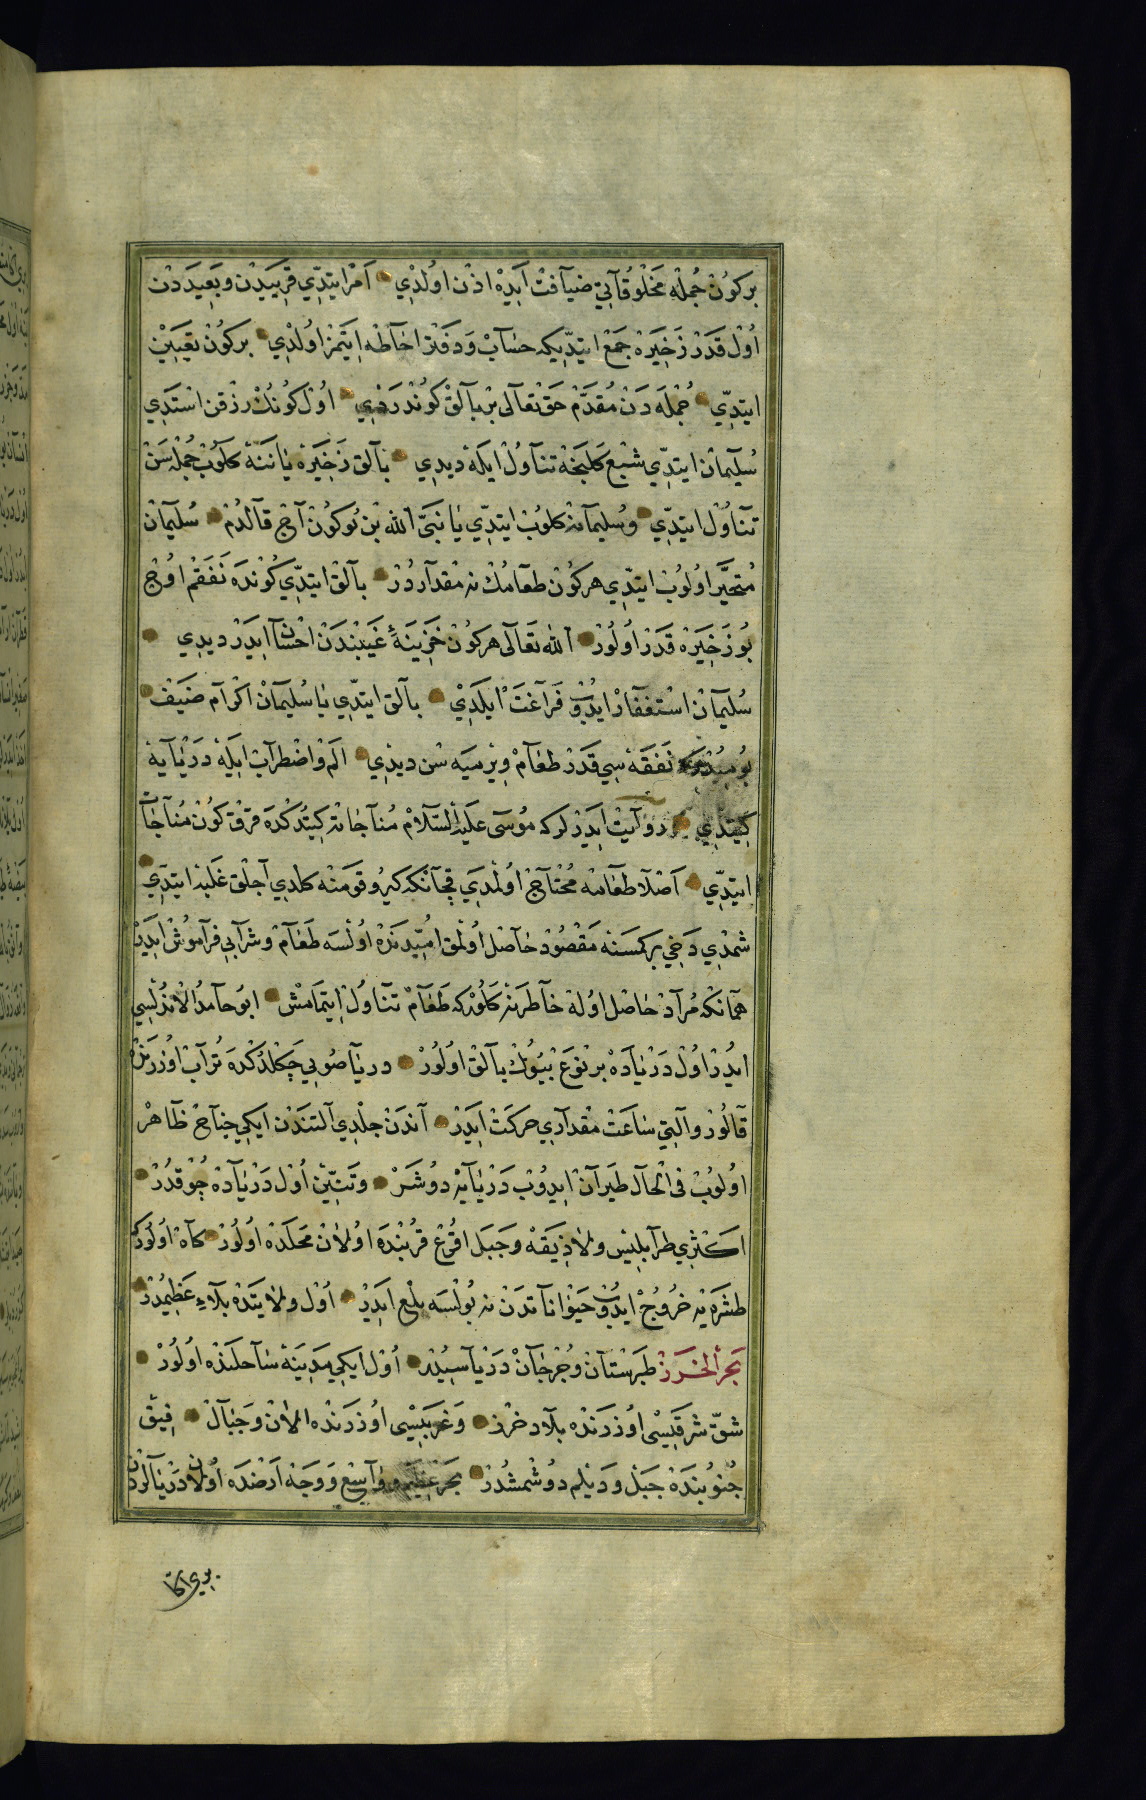 بركون جمله مخلوقاتي ضيافت ايده اذن اولدي امر ايتدي قريبدن و بعيددن
اول قدر ذخيره جمع ايتديكه حساب ودفتر احاطه ايتمز اولدي بركون تعيين
ايتدي جمله دن مقدم حق تعالى بر بالق كوندردي اول كونك رزقن استدي
سليمان ايتدي شبع كلنجه تناول ايله ديدي بالق ذخيره ياننه كلوب جمله سن
تناول ايتدي وسليمانه كلوب ايتدي يا نبي الله بن بوكون آج قالدم سليمان
متحير اولوب ايتدي هركون طعامك نه مقداردر بالق ايتدي كونده نفقم اوج
بو ذخيره قدر اولور الله تعالى هركون خزينهٔ غيبندن احسان ايدر ديدي
سليمان استغفار ايدوب فراغت ايلدي بالق ايتدي يا سليمان اكرام ضيف
بوميدركه نفقه سي قدر طعام ويرميه سن ديدي الم واضطراب ايله دريايه
كيتدي روايت ايدرلركه موسى عليه السلام مناجاته كيتدكده قرق كون مناجات
ايتدي اصلا طعامه محتاج اولمدي قچانكه كيرو قومنه كلدي آجلق غلبه ايتدي
شمدي دخي بركمسنه مقصود حاصل اولمق اميدنده اولسه طعام وشرابي فراموش ايدر
همانكه مراد حاصل اوله خاطرنه كلوركه طعام تناول ايتمامش ابو حامد الاندلسي
ايدر اول درياده بر نوع بيوك بالق اولور دريا صويي چكلدكده تراب اوزرينه
قالور والتي ساعت مقداري حركت ايدر آندن جلدي آلتندن ايكي جناح ظاهر
اولوب في الحال طيران ايدوب دريايه دوشر وتنين اول درياده چوقدر
اكثري طرابلس ولاذيقه وجبل اقرع قربنده اولان محلده اولور كاه اولوركه
طشره يه خروج ايدوب حيواناتدن نه بولسه بلع ايدر اول ولايتده بلاء عظيمدر
بحر الخزر طبرستان وجرجان درياسيدر اول ايكي مدينه ساحلنده اولور
شق شرقيسي اوزرنده بلاد خزر وغربيسي اوزرنده الان وجبال فبق
جنوبنده جبل وديلم دوشمشدر بحر عظيم وواسع ووجه ارضده اولان دريالردن
بري اكا